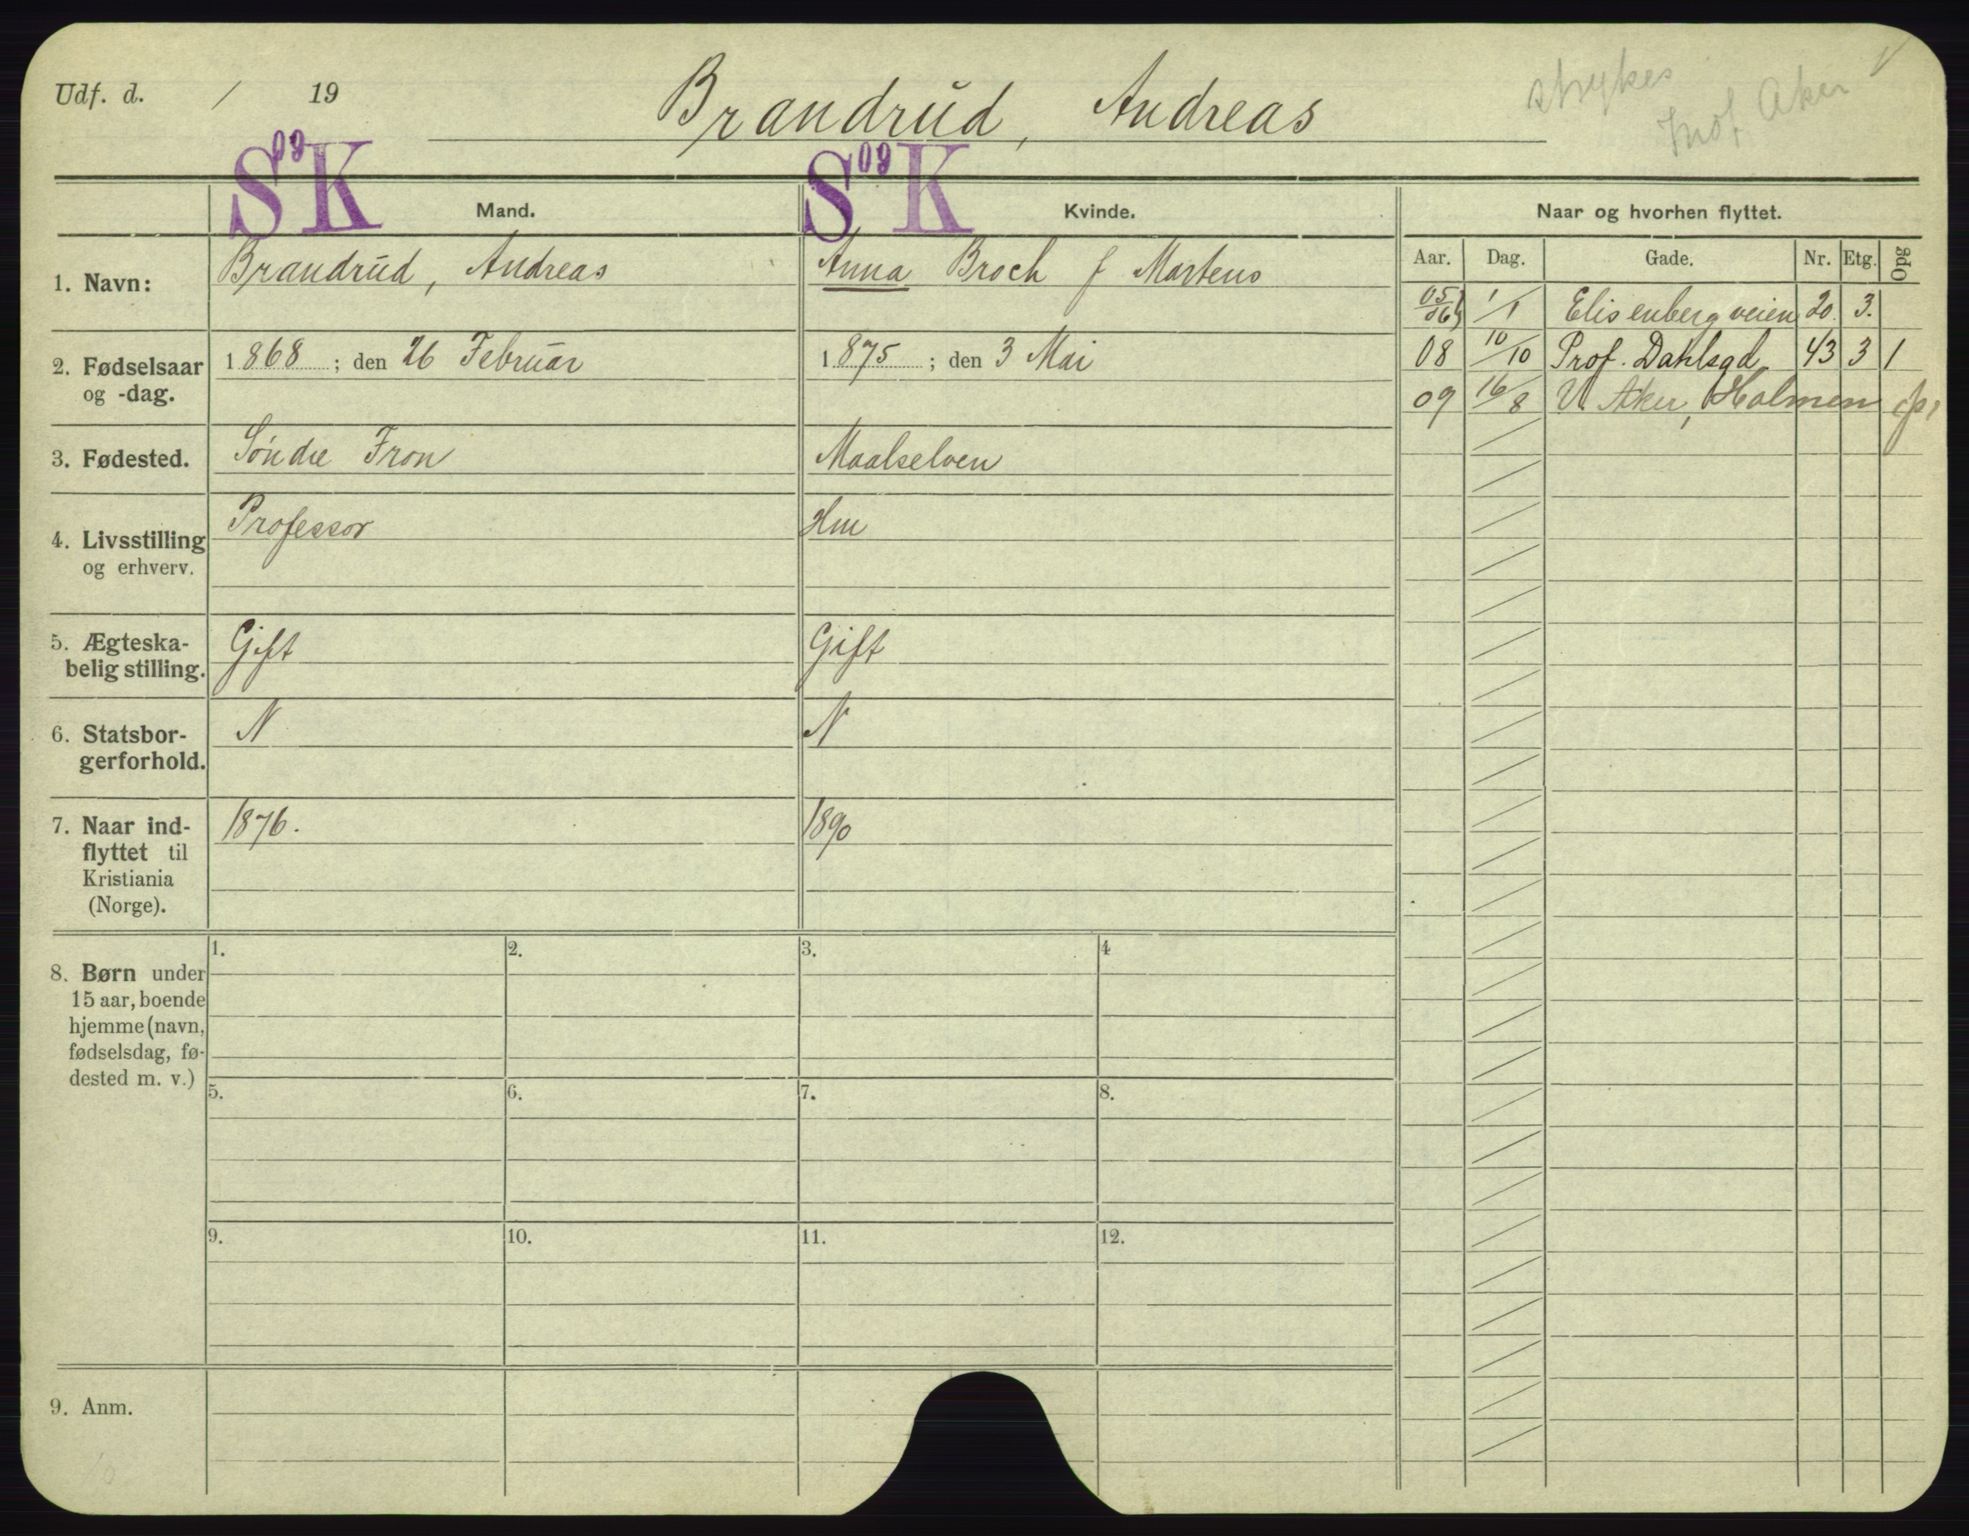 Udf. d. / 19
Brandrud, Andreas
strykes
Aker
S og K
S og K
Mand.
Kvinde.
Naar og hvorhen flyttet.
Aar. Dag. Gade. Nr. Etg. Opg
1. Navn: Brandrud, Andreas
Anna Broch f Martens
05/06 1/1 Elisenbergveien 20. 3.
08 10/10 Prof. Dahlsgd 43 3 1
09 16/8 V. Aker, Holmen
2. Fødselsaar og -dag. 1868 ; den 26 Februar
1875 ; den 3 Mai
3. Fødested. Søndre Fron
Maalselven
4. Livsstilling og erhverv. Professor
Hm
5. Ægteskabelig stilling. Gift
Gift
6. Statsborgerforhold. N
N
7. Naar indflyttet til Kristiania (Norge). 1876.
1890
8. Børn under 15 aar, boende hjemme (navn, fødselsdag, fødested m. v.)
1. 2. 3. 4
5. 6. 7. 8.
9. 10. 11. 12.
9. Anm.